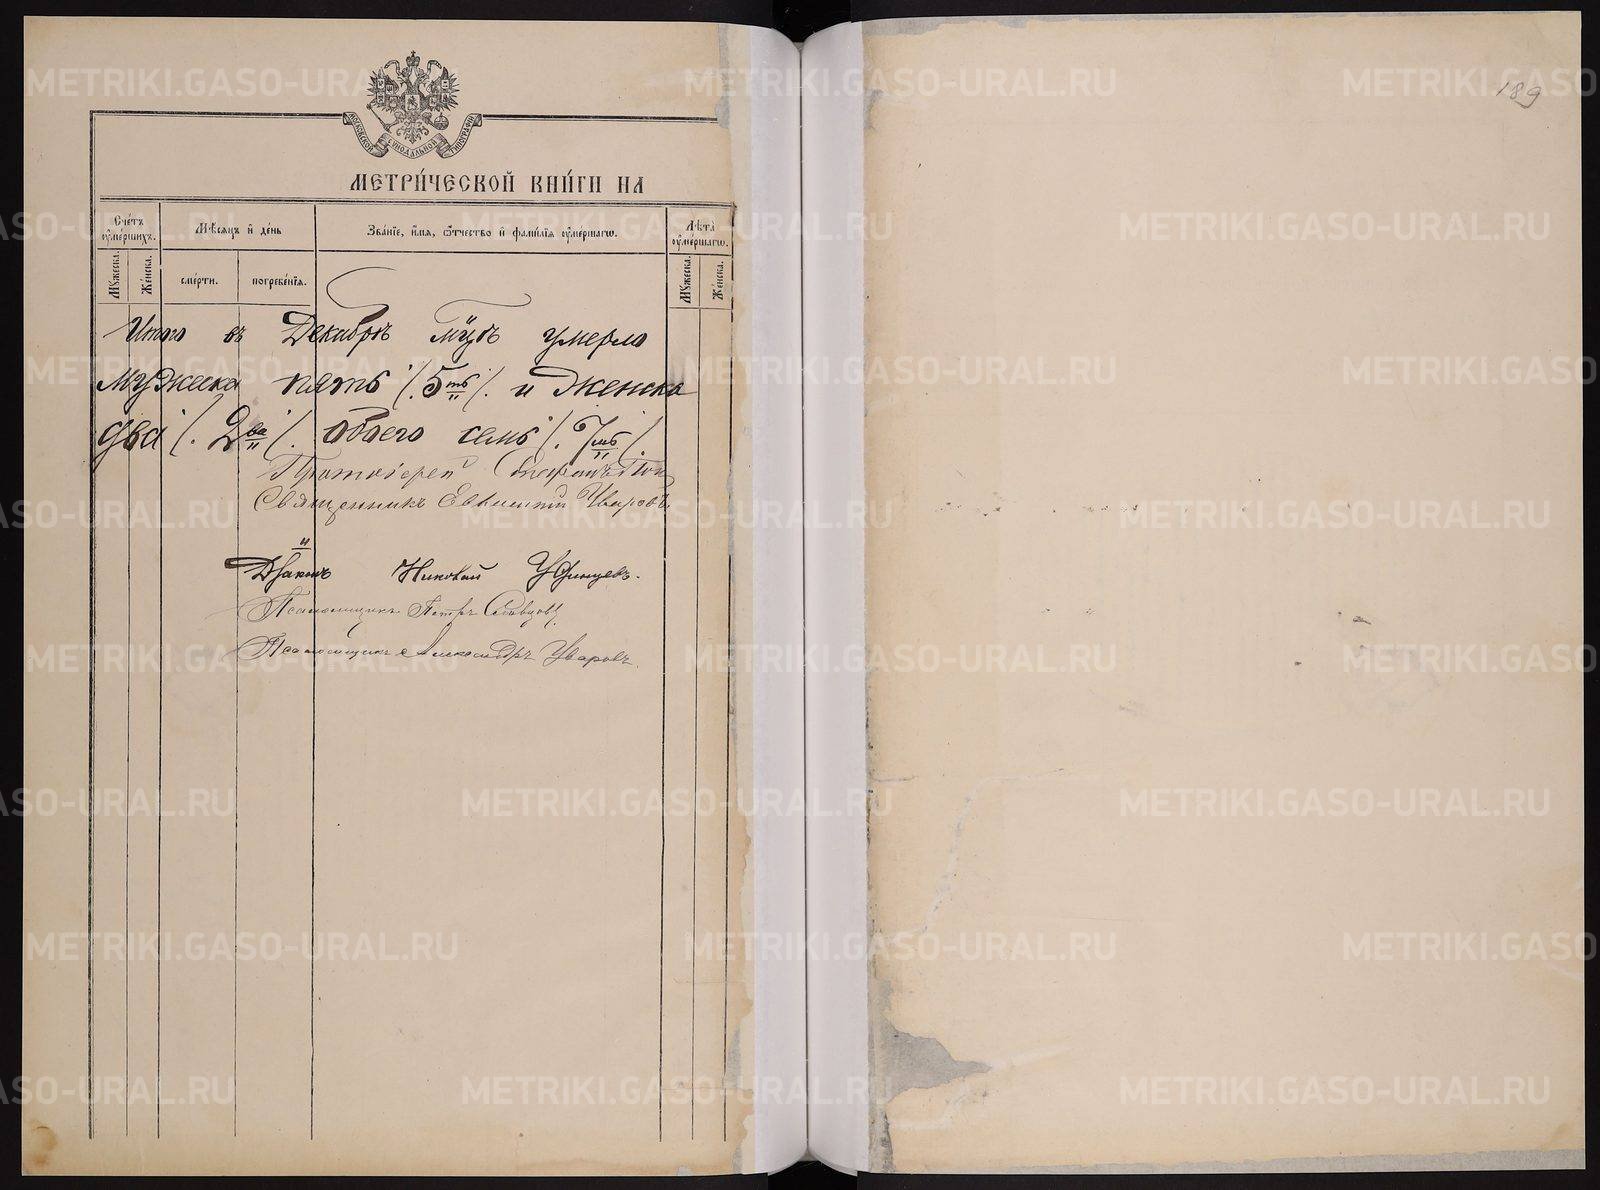 МОСКОВСКОЙ СѴНОДАЛЬНОЙ ТИПОГРАФІИ
МЕТРИ́ЧЕСКОЙ КНИ́ГИ НА
Сче́тъ ᲂу҆ме́ршихъ.
Мѣ́сяцъ и҆ де́нь
Зва́нїе, и҆́мя, ѻ҆́тчество и҆ фамı́лїя ᲂу҆ме́ршагѡ.
Лѣта̀ ᲂу҆ме́ршагѡ.
Мꙋ́жеска.
Же́нска.
сме́рти.
погребе́нїя.
Мꙋ́жеска.
Же́нска.
Итого въ Декабрѣ мцѣ умерло
мужеска пять /. 5ть /. и женска
два /. 2ва /. обоего семь /. 7мь /.
Протоіерей
Священникъ Евлампій Уваровъ
Діаконъ Николай Удинцевъ.
Псаломщикъ Петръ Словцовъ
Псаломщикъ Александръ Уваровъ.
189
METRIKI.GASO-URAL.RU